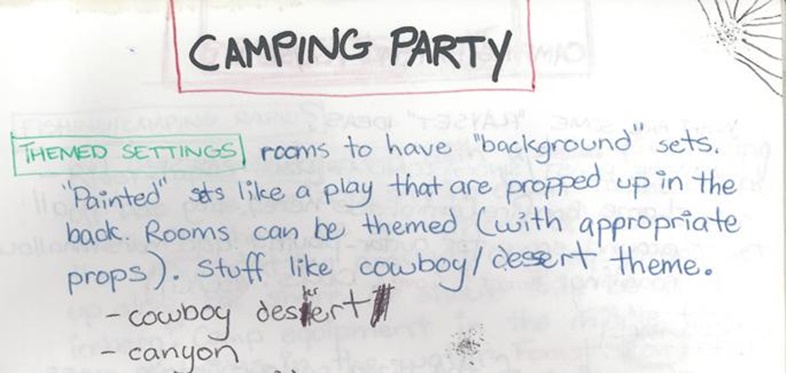 CAMPING PARTY
THEMED SETTINGS rooms to have "background" sets.
"Painted" sets like a play that are propped up in the
back. Rooms can be themed (with appropriate
props). Stuff like cowboy/desert theme.
- cowboy desert
- canyon